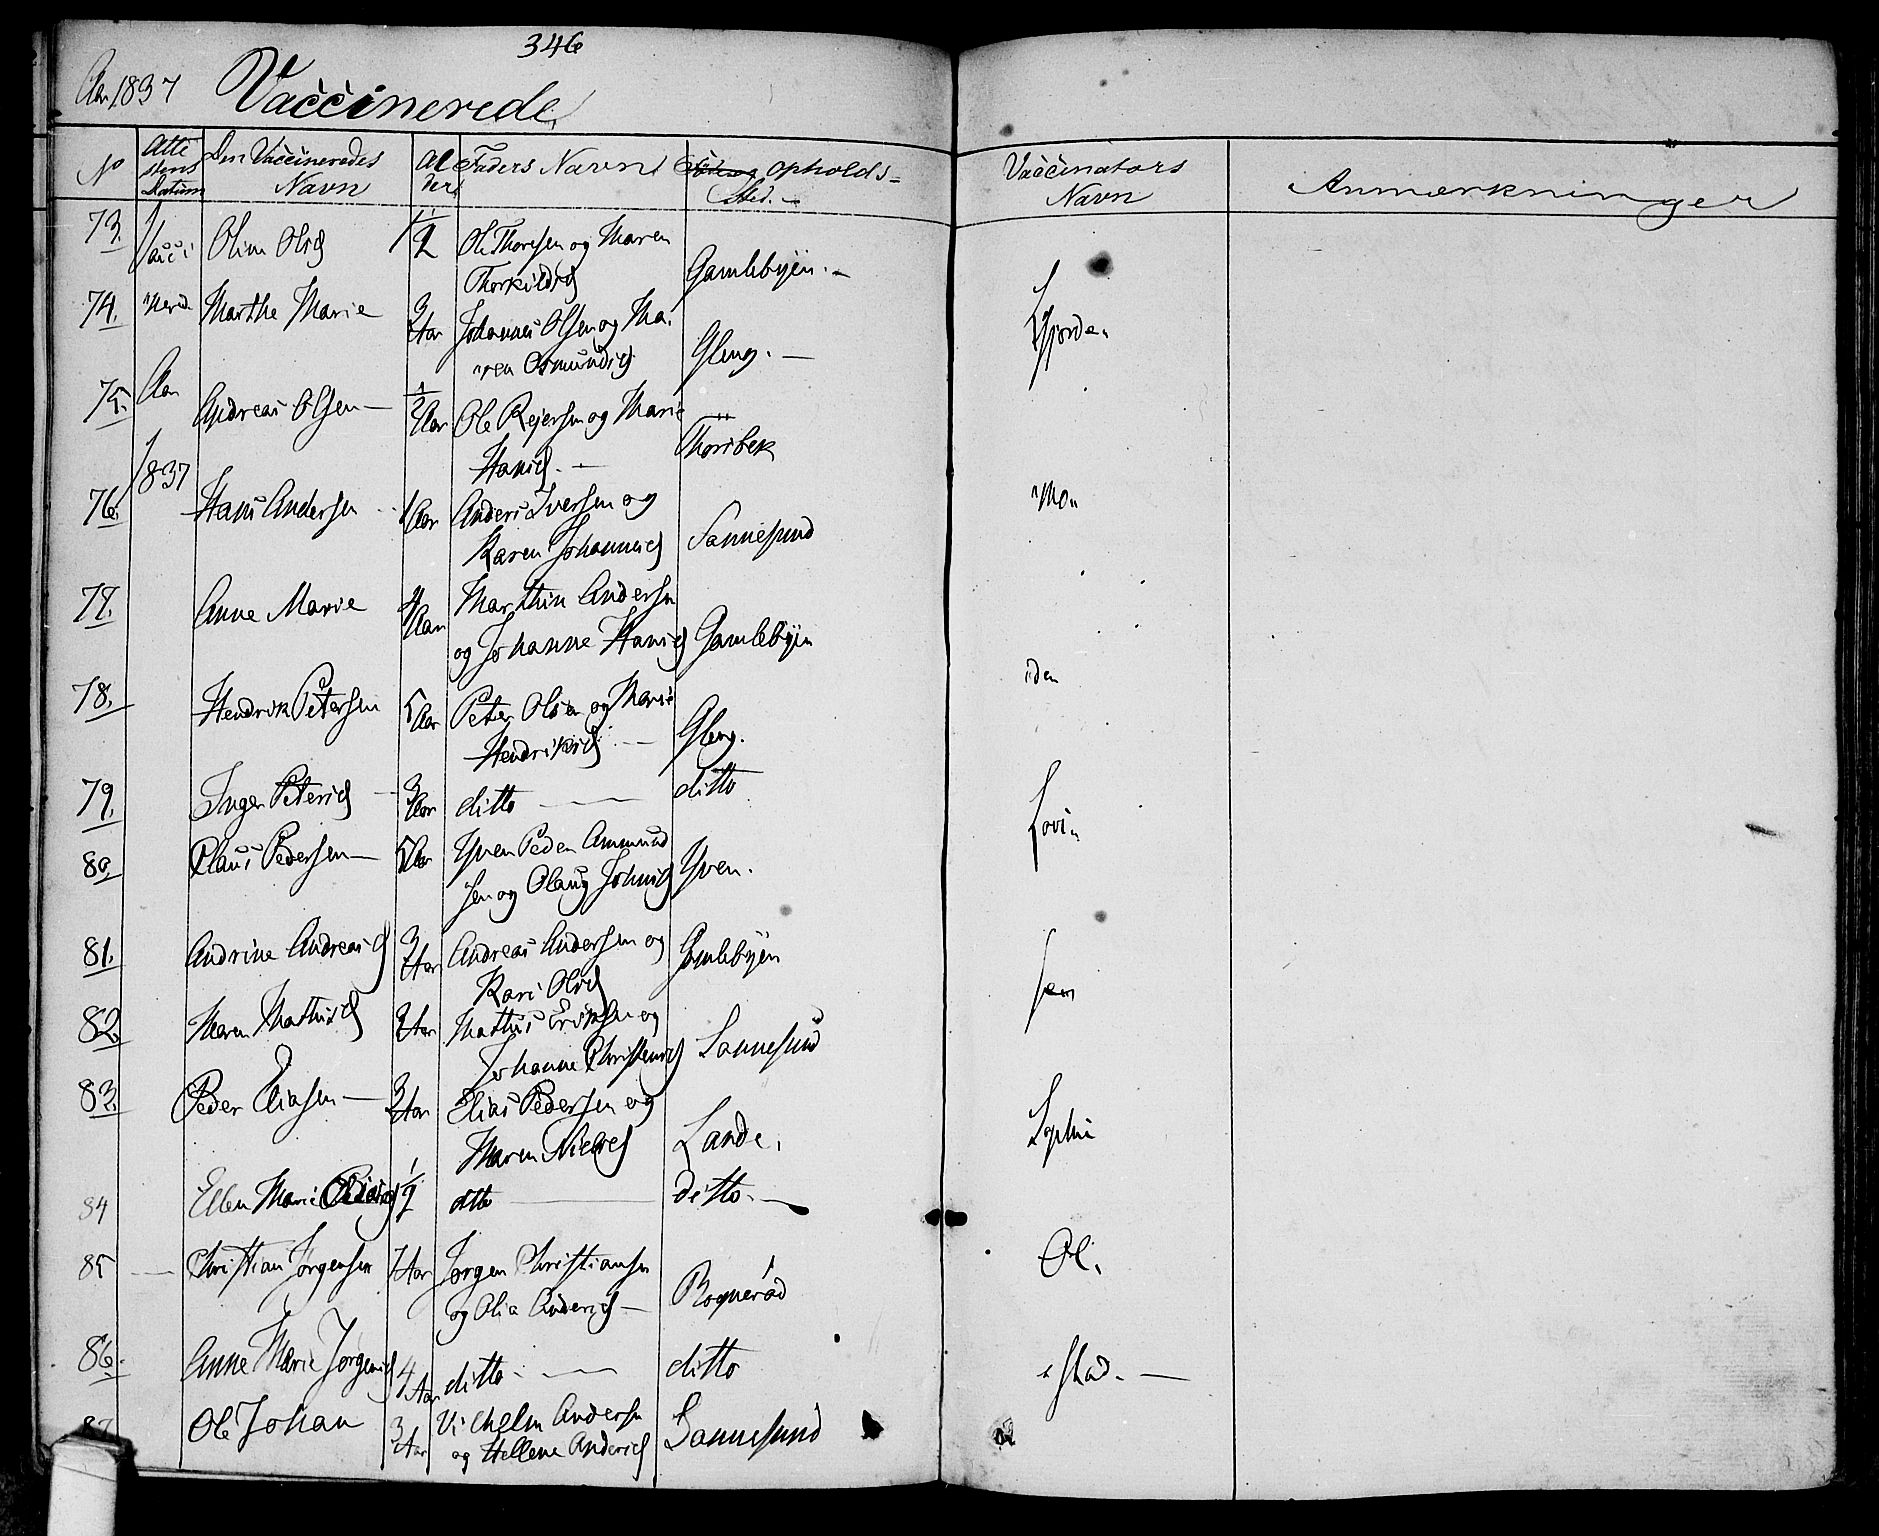 346
Aar 1837 Vaccinerede
No Atte stens Datum Den Vaccineredes Navn Al der Faders Navn Opholds= Sted. Vaccinators Navn Anmærkninger
73. Vacci Oline Olsd 1/2 Ole Thoresen og Maren
Thorkildsd Gamlebyen.
74. nerede Marthe Marie 3 Aar Johannes Olsen og Ma,
ren Osmundsd Gleng. Gjørde,
75. Aar Andreas Olsen 1/2 Aar Ole Rejersen og Marie
Hansd. Thorsbek
1837
76. Hans Andersen 1 Aar Anders Iversen og Mo,
Karen Johannesd Sannesund
77. Anne Marie 4 Aar Marthin Andersen
og Johanne Hansd Gamlebyen
78. Hendrik Petersen 5 Aar Peter Olsen og Marie den
Hendriksd Gleng.
79. Inger Petersd 3 Aar ditto ditto Lovi,
80. Claus Pedersen 5 Aar Yven Peder Ammund
sen og Olaug Johnsd Yven.
81. Andrine Andreasd 3 Aar Andreas Andersen og Gamlebyen
Kari Olsd sen
82. Maren Mathisd 2 Aar Mathis Eriksen og
Johanne Christensd Sannesund
83. Peder Eliasen 3 Aar Elias Pedersen og
Maren Nielsd Lande. Sophie
84 Ellen Marie 1/2 ditto ditto.
85 Christian Jørgensen 7 Aar Jørgen Christiansen Ol,
og Olia Andersd Rognerød
86. Anne Marie Jørgensd 4 Aar ditto ditto stad.
87 Ole Johan 3 Aar Vilhelm Andersen
og Hellene Andersd Sannesund